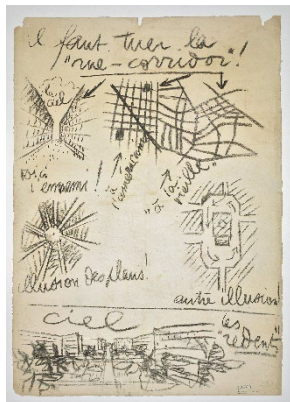 il faut tuer la
"rue-corridor"!
le
ciel
voilà
l'ennemi!
à l'américaine
"à la
vieille"
illusion des plans!
autre illusion!
ciel
les
"redents"